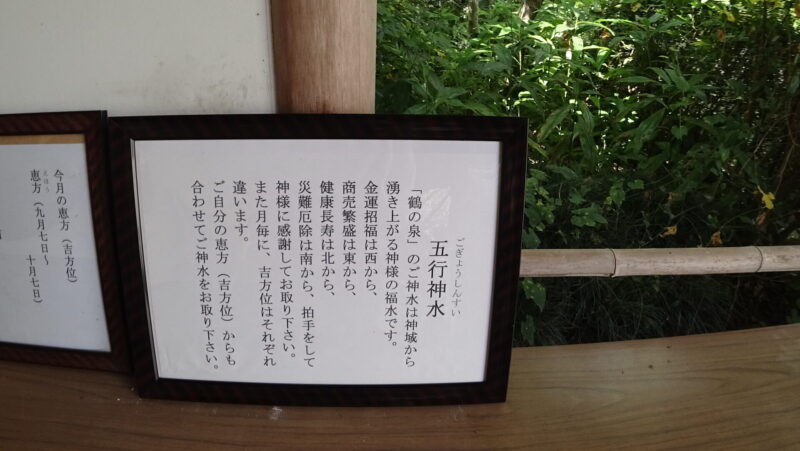 五行神水
ごぎょうしんすい
「鶴の泉」のご神水は神域から
湧き上がる神様の福水です。
金運招福は西から、
商売繁盛は東から、
健康長寿は北から、
災難厄除は南から、拍手をして
神様に感謝してお取り下さい。
また月毎に、吉方位はそれぞれ
違います。
ご自分の恵方（吉方位）からも
合わせてご神水をお取り下さい。
今月の恵方（吉方位）
えほう
恵方（九月七日～
十月七日）